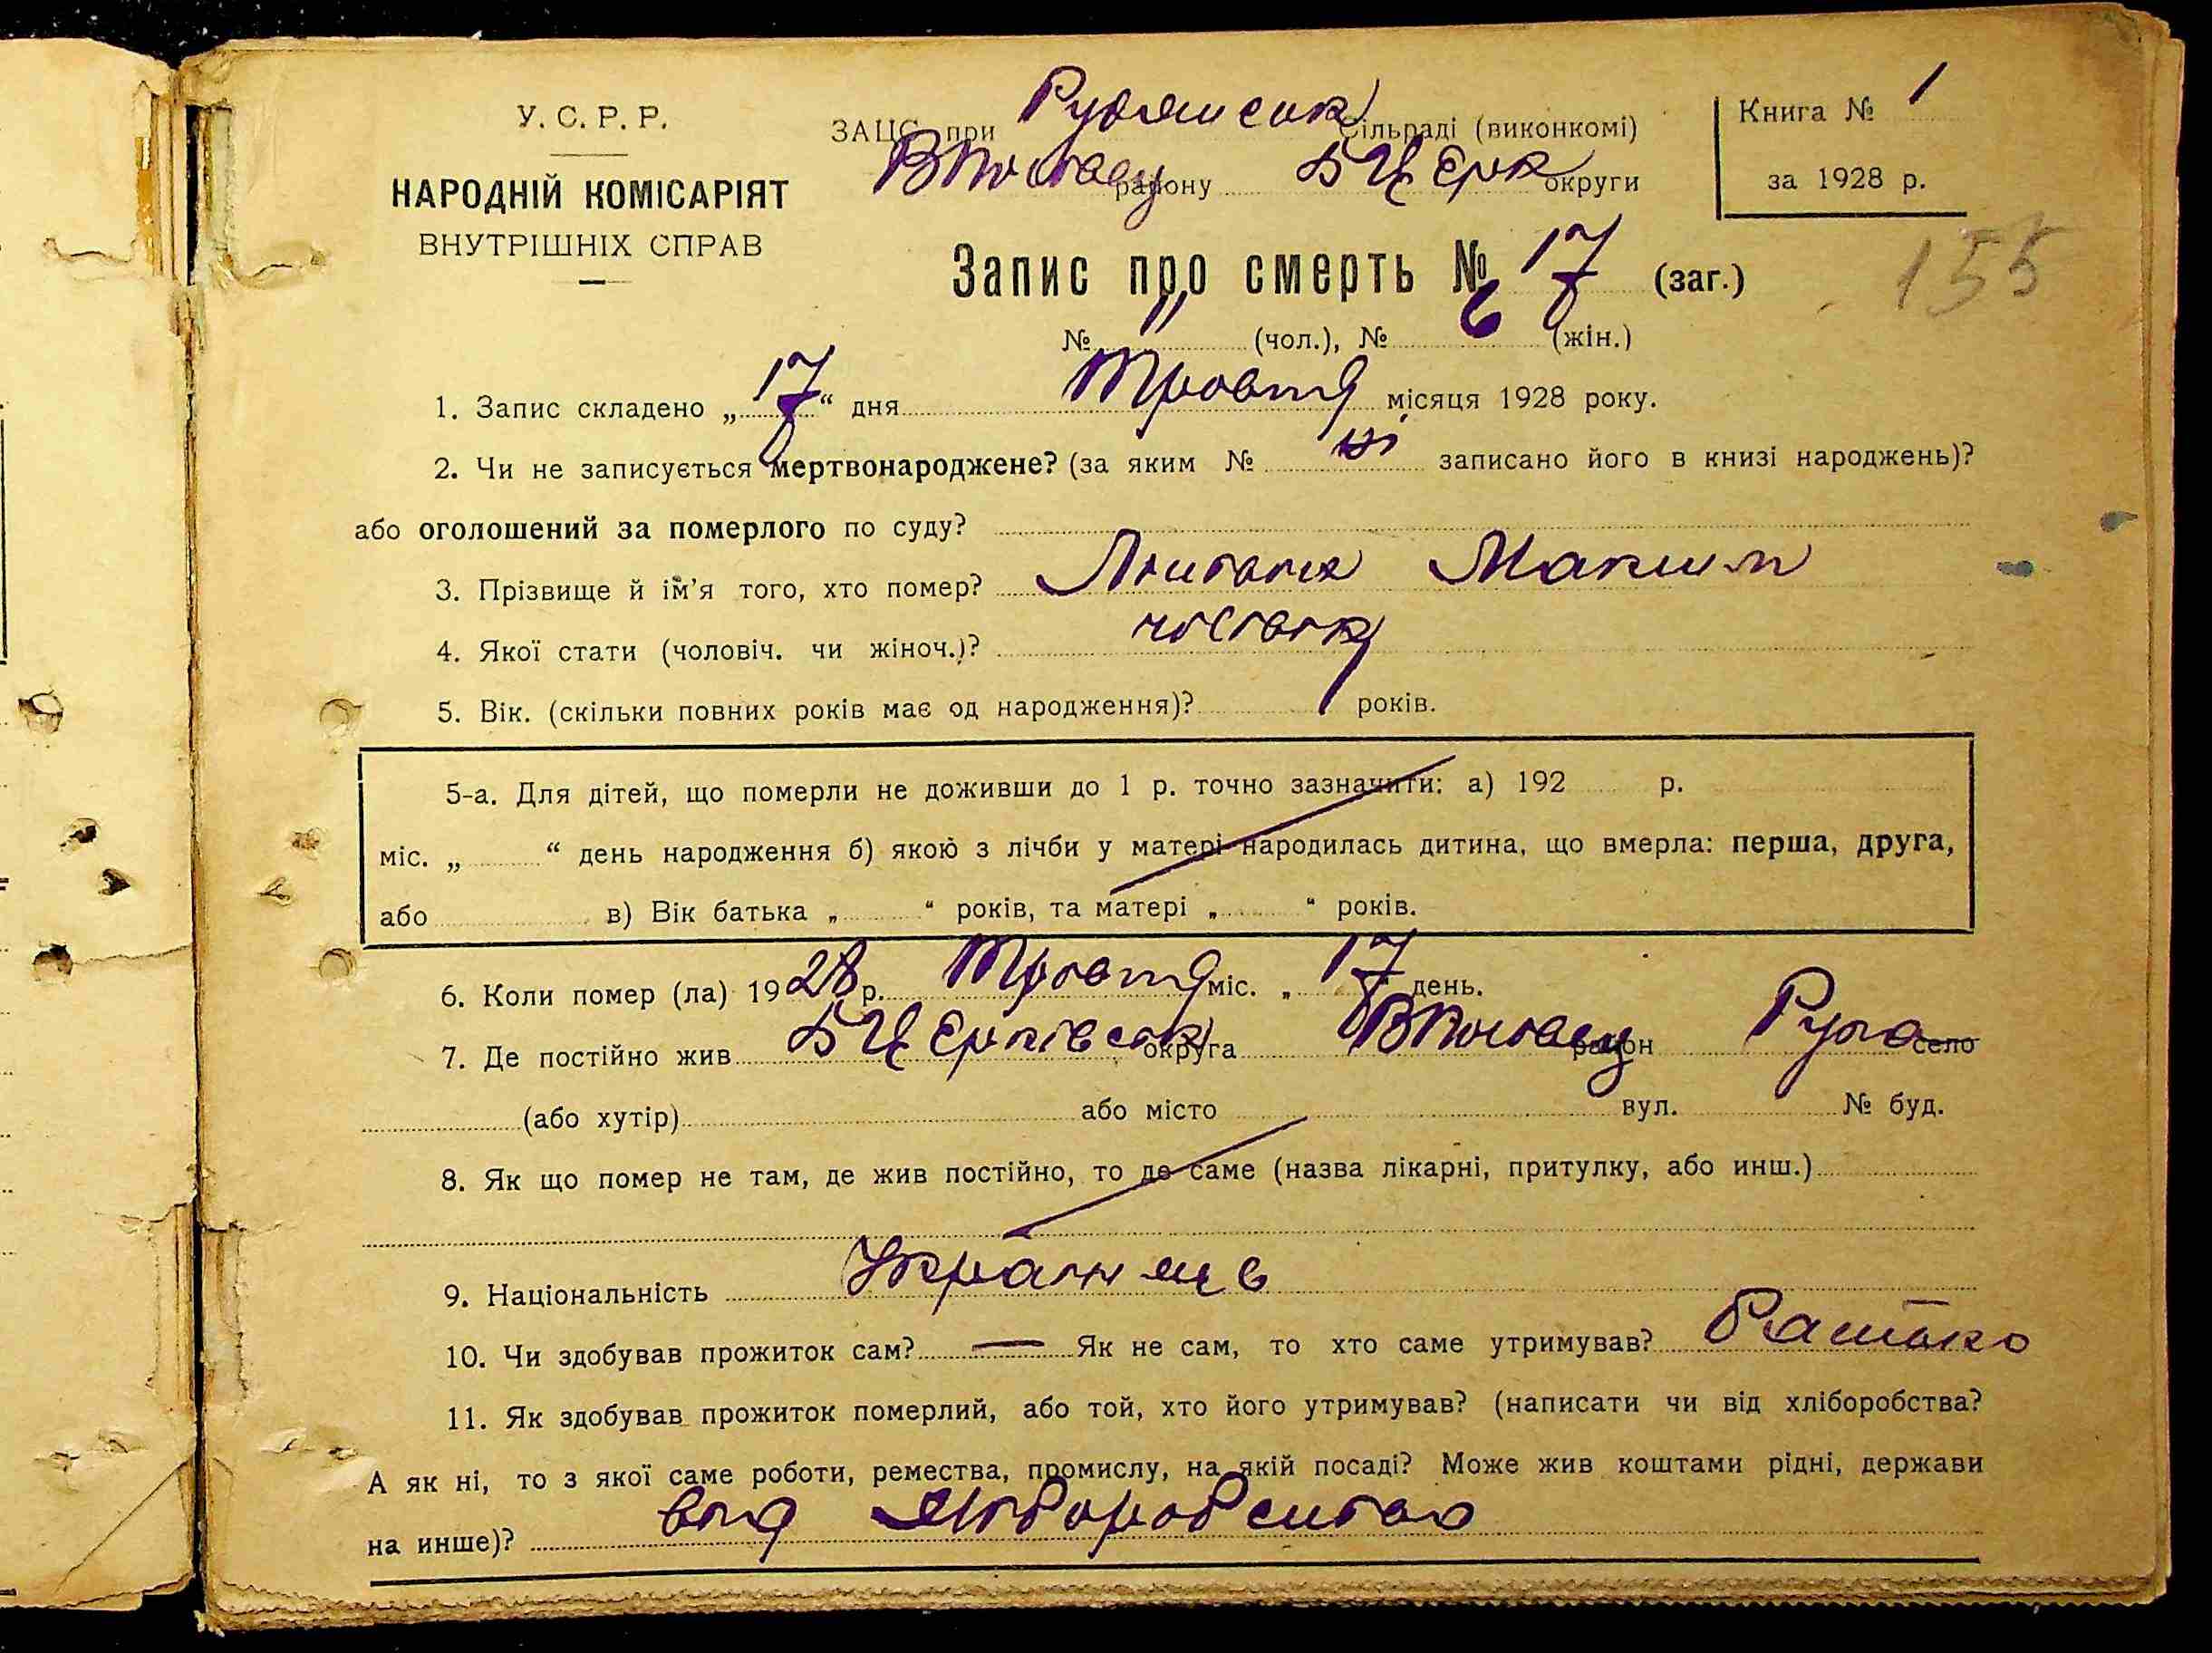 У. С. Р. Р.
НАРОДНІЙ КОМІСАРІЯТ
ВНУТРІШНІХ СПРАВ
ЗАЦС при Рудянськ Сільраді (виконкомі)
району БЦерк округи
Книга № 1
за 1928 р.
155
Запис про смерть № 17 (заг.)
№ 11 (чол.), № 6 (жін.)
1. Запис складено „ 17 “ дня Травня місяця 1928 року.
2. Чи не записується мертвонароджене? (за яким № ні записано його в книзі народжень)?
або оголошений за померлого по суду?
3. Прізвище й ім’я того, хто помер? Максим
4. Якої стати (чоловіч. чи жіноч.)?
5. Вік. (скільки повних років має од народження)? 1 років.
5-а. Для дітей, що померли не доживши до 1 р. точно зазначити: а) 192 р.
міс. „ “ день народження б) якою з лічби у матері народилась дитина, що вмерла: перша, друга,
або в) Вік батька „ “ років, та матері „ “ років.
6. Коли помер (ла) 1928 р. Травня міс. „ 17 день.
7. Де постійно жив БЦерківськ округа район Руда село
(або хутір) або місто вул. № буд.
8. Як що помер не там, де жив постійно, то де саме (назва лікарні, притулку, або инш.)
9. Національність Українець
10. Чи здобував прожиток сам? — Як не сам, то хто саме утримував? Батько
11. Як здобував прожиток померлий, або той, хто його утримував? (написати чи від хліборобства?
А як ні, то з якої саме роботи, ремества, промислу, на якій посаді? Може жив коштами рідні, держави
на инше)? від хліборобства